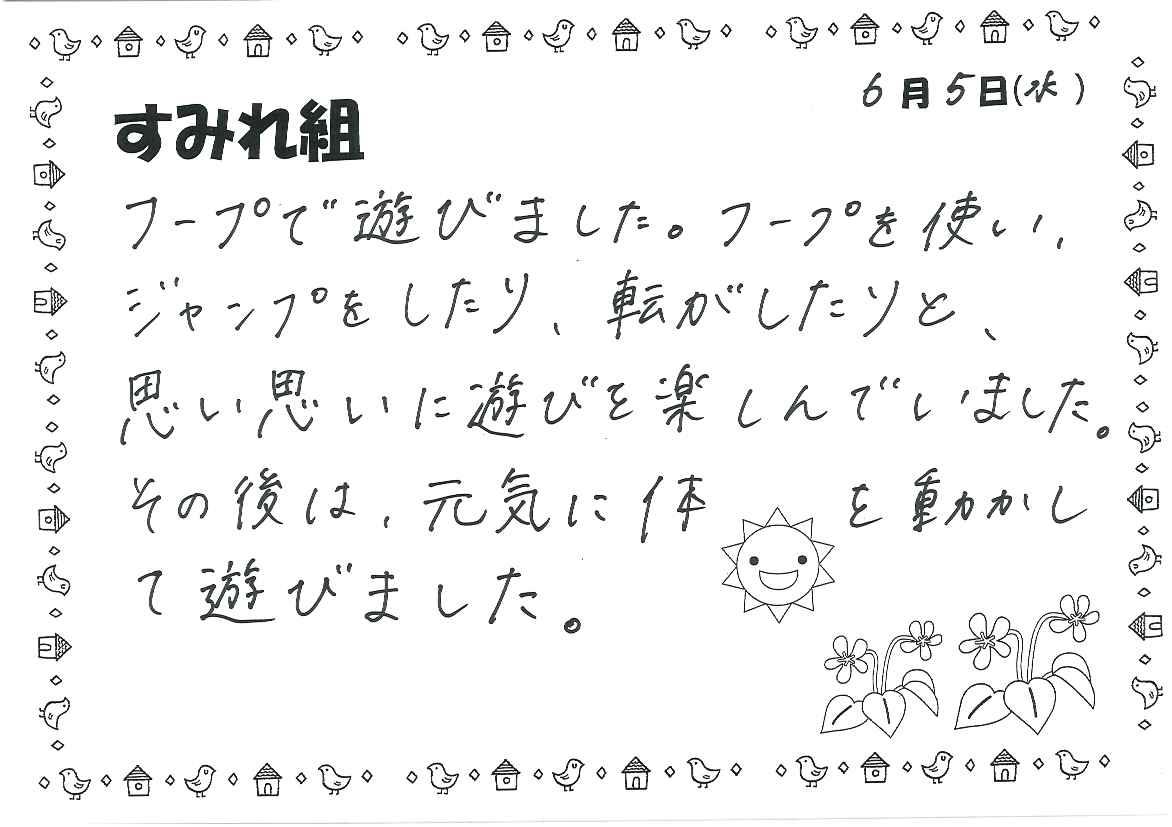 6月5日(水)
すみれ組
フープで遊びました。フープを使い、
ジャンプをしたり、転がしたりと、
思い思いに遊びを楽しんでいました。
その後は、元気に体を動かし
て遊びました。